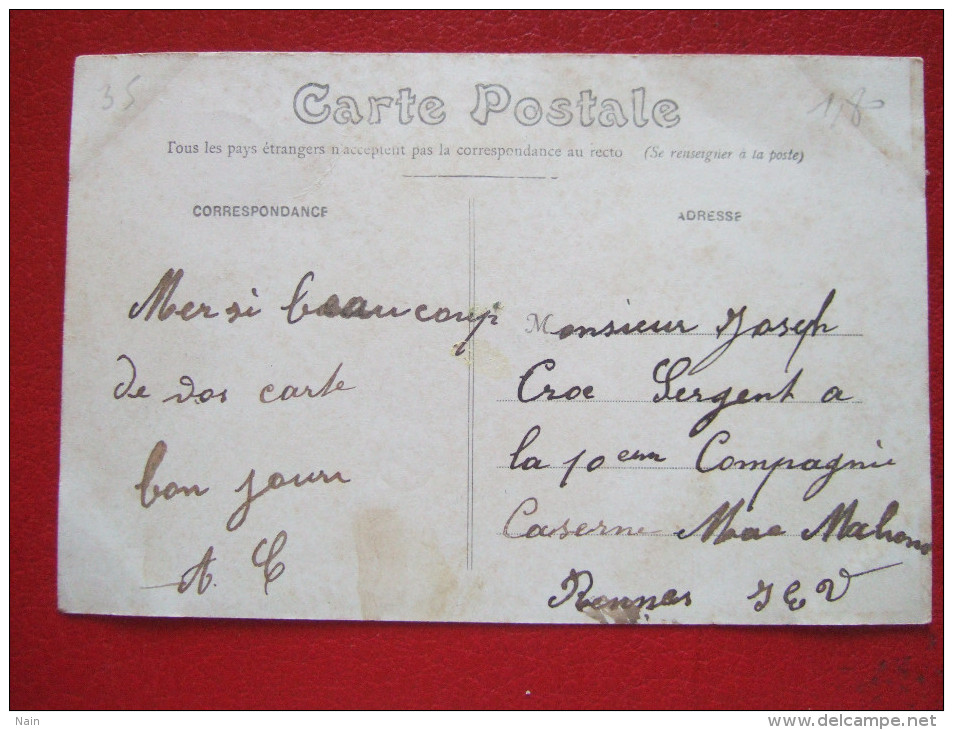 35
Carte Postale
Tous les pays étrangers n'acceptent pas la correspondance au recto (Se renseigner à la poste)
CORRESPONDANCE
Mersi beaucoup
de vos carte
bon jour
A. C
ADRESSE
Monsieur Joseph
Croc Sergent a
la 10eme Compagnie
Caserne Mac Mahon
Rennes I & V
Nain
delcampe.net